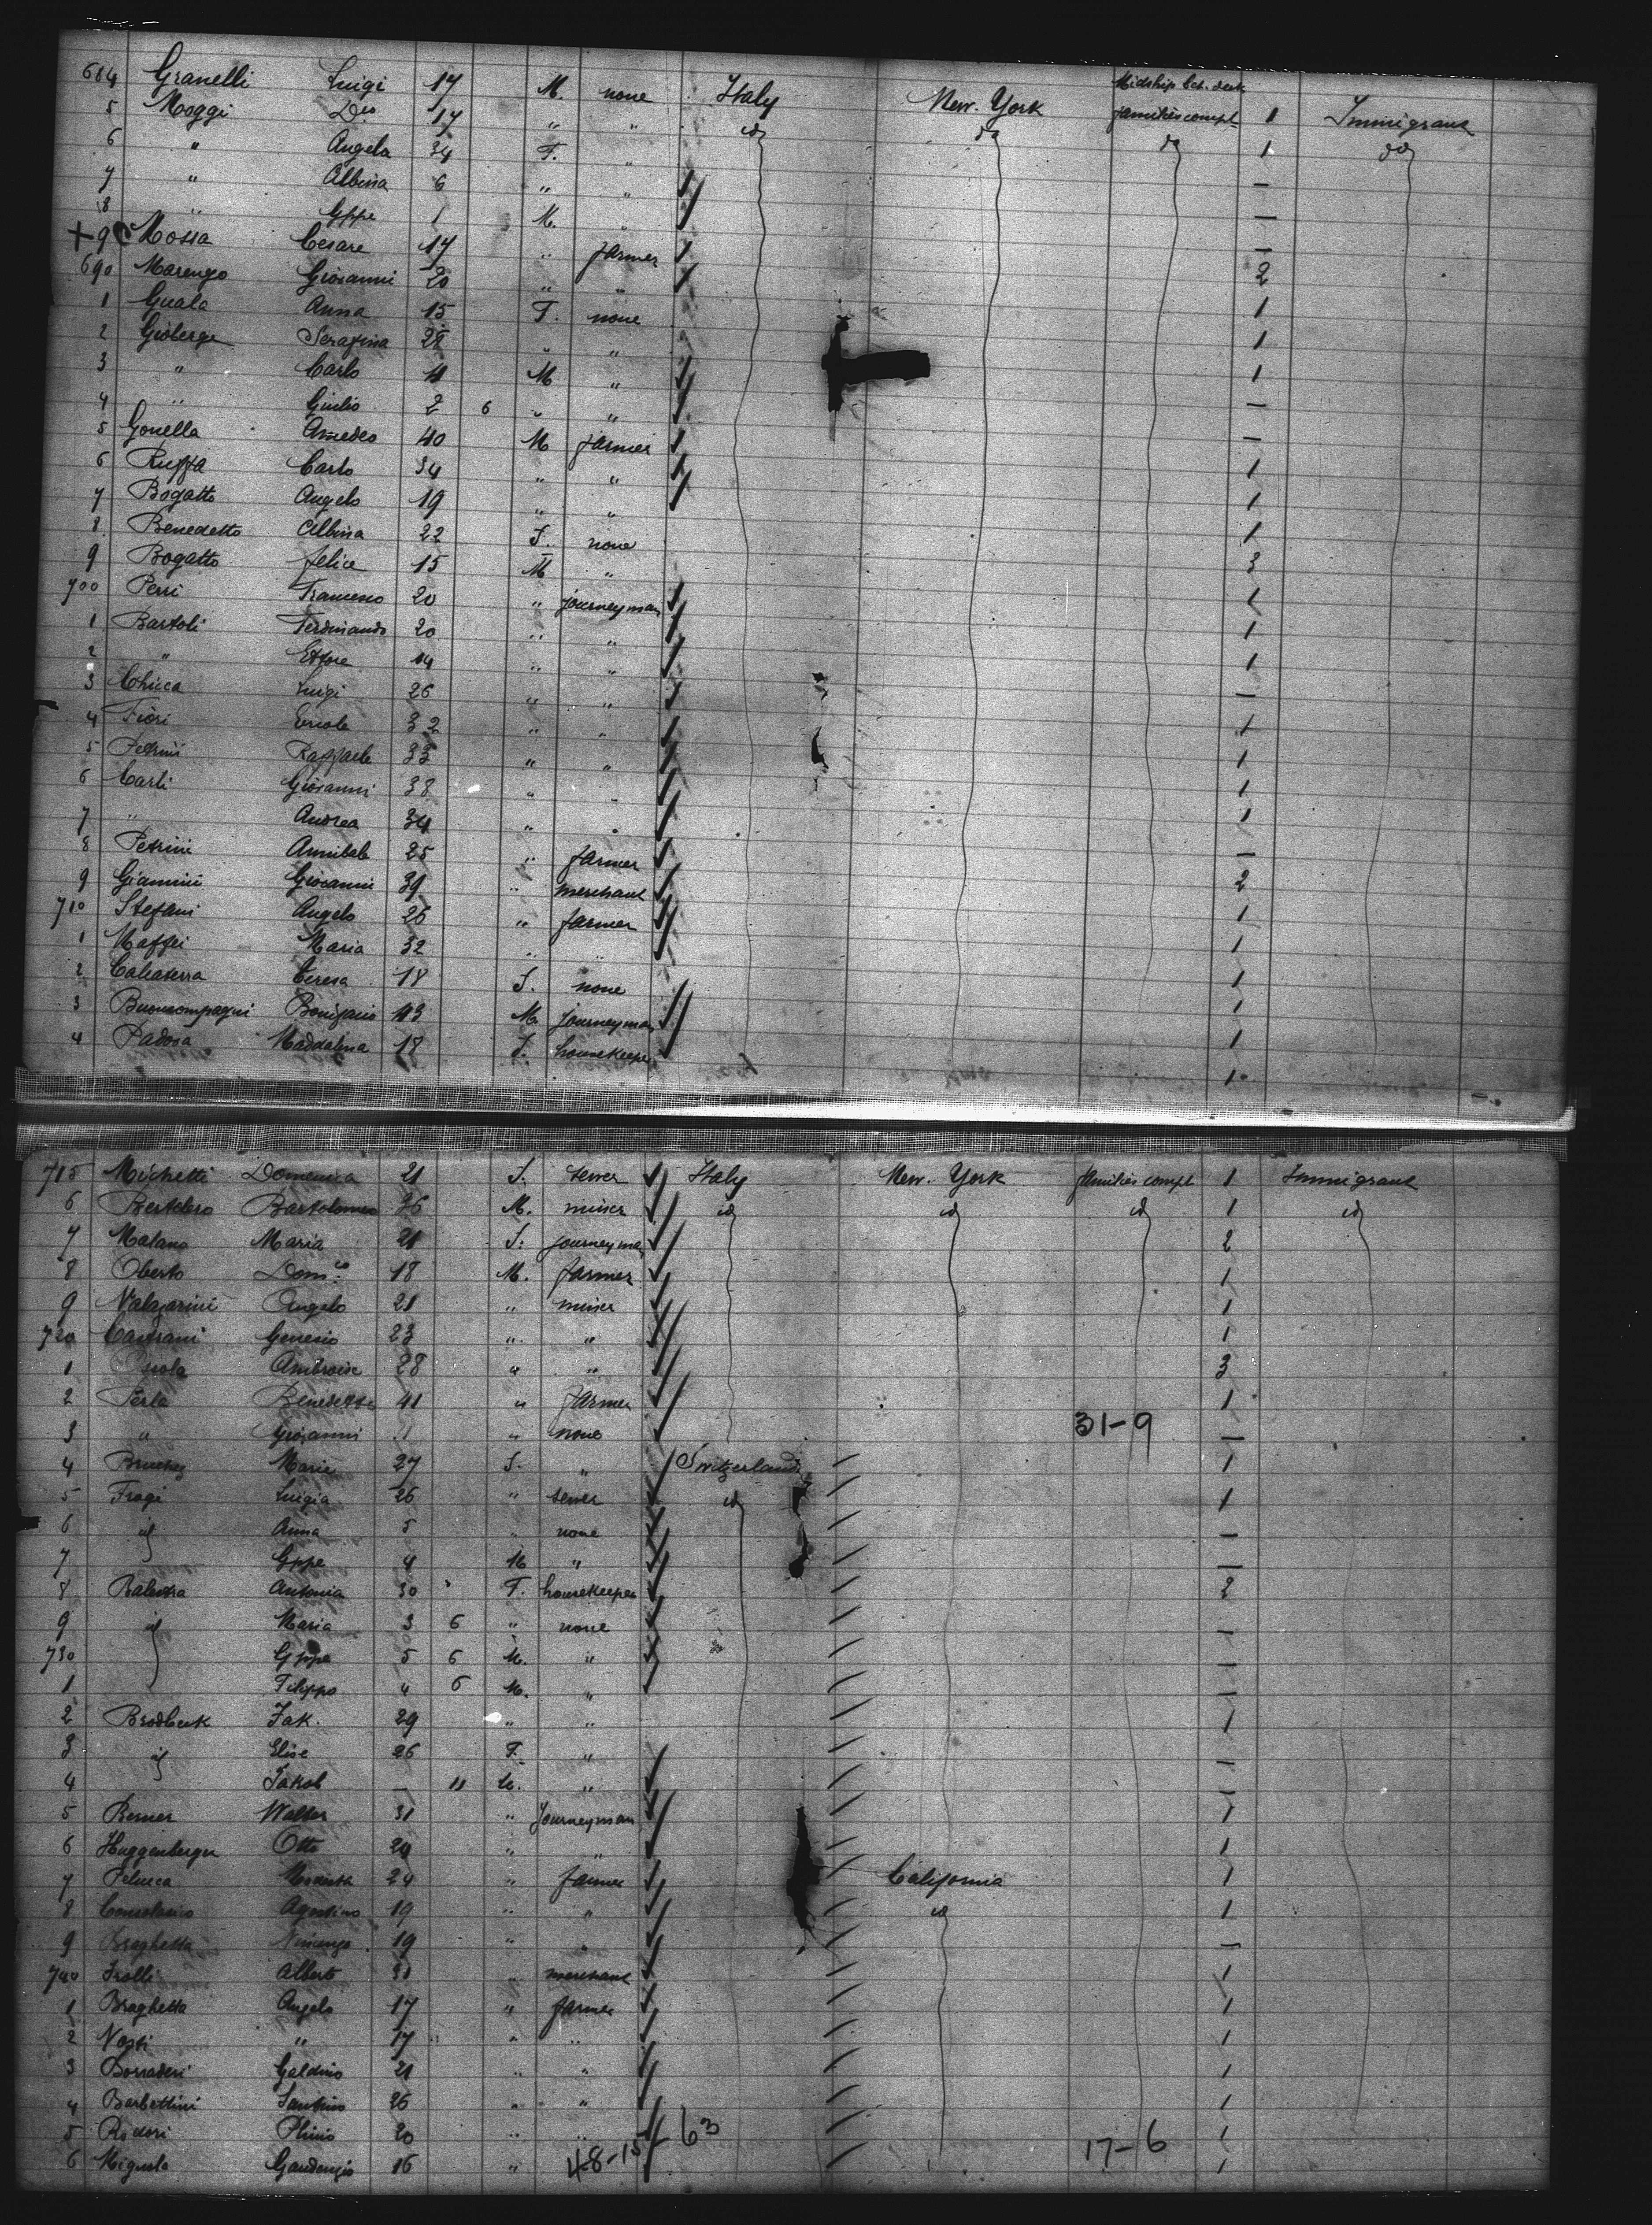 684 Granelli Luigi 17 M. none Italy New. York Midship bet. deck families compt 1 Immigrant
5 Moggi Dco 17 " " id id id 1 id
6 " Angela 34 F. "
7 " Albina 6 " " —
8 " Gppe 1 M. " —
+ 9 Mossa Cesare 17 " farmer —
690 Marengo Giovanni 20 " " 2
1 Guala Anna 15 F. none 1
2 Gioberge Serafina 28 " " 1
3 " Carlo 4 M " 1
4 " Giulio 2 6 " " —
5 Gonella Amedeo 40 M farmer —
6 Ruffa Carlo 34 " " 1
7 Bogatto Angelo 19 " " 1
8 Benedetto Albina 22 F. none 1
9 Bogatto Felice 15 M " 3
700 Perri Francesco 20 " journeyman 1
1 Bartoli Ferdinando 20 " " 1
2 " Ettore 14 " " 1
3 Chicca Luigi 26 " " —
4 Fiori Ercole 32 " " 1
5 Petrini Raffaele 33 " " 1
6 Carli Giovanni 38 " " 1
7 " Andrea 34 " " 1
8 Petrini Annibale 25 " farmer —
9 Giannini Giovanni 39 " merchant 2
710 Stefani Angelo 26 " farmer 1
1 Maffei Maria 32 " " 1
2 Calcaterra Teresa 18 F. none 1
3 Buoncompagni Bonifacio 43 M journeyman 1
4 Padova Maddalena 18 F. housekeeper 1
1
715 Michetti Domenica 21 F. sewer Italy New. York families compt 1 Immigrant
6 Bertolero Bartolomeo 36 M. miner id id id 1 id
7 Malano Maria 21 F. journeyman 2
8 Oberto Domco 18 M. farmer 1
9 Valazarini Angelo 21 " miner 1
720 Castrani Genesio 23 " " 1
1 Ambroise 28 " " 3
2 Perla Benedetto 41 " farmer 1
3 " Giovanni 1 " none 31-9 —
4 Bruchez Marie 27 F. " Switzerland 1
5 Fragi Luigia 26 " sewer id 1
6 id Anna 5 " none —
7 Gppe 4 M " —
8 Balestra Antonia 30 F. housekeeper 2
9 id Maria 3 6 " none —
730 Gppe 5 6 M. " —
1 Filippo 4 6 M. " —
2 Brodbeck Jak. 29 " " 1
3 id Elise 26 F. " —
4 Jakob — 11 M. " —
5 Berner Walter 31 " Journeyman 1
6 Huggenberger Otto 20 " " 1
7 Pelucca Modesta 24 " farmer California 1
8 Agostino 19 " " id 1
9 Braghetta Vincenzo 19 " " —
740 Trolli Alberto 31 " merchant 1
1 Braghetta Angelo 17 " farmer 1
2 " 17 " " 1
3 Borradori Galdino 21 " " 1
4 Barbettini Santino 26 " " 1
5 Rodori Plinio 20 " " 63 1
6 Gaudenzio 16 " 48-15 17-6 1